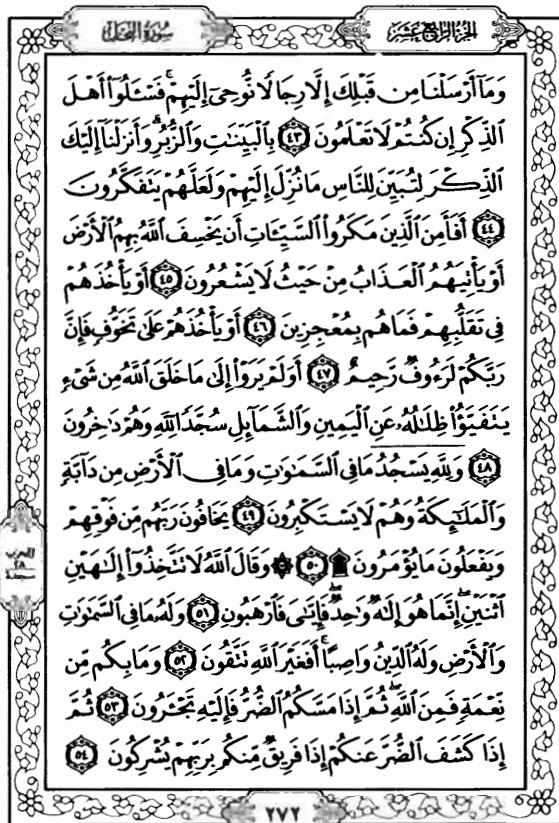 الجزء الرابع عشر
سورة النحل
وَمَآ أَرْسَلْنَا مِن قَبْلِكَ إِلَّا رِجَالًا نُّوحِىٓ إِلَيْهِمْ ۚ فَسْـَٔلُوٓا۟ أَهْلَ
ٱلذِّكْرِ إِن كُنتُمْ لَا تَعْلَمُونَ ﴿٤٣﴾ بِٱلْبَيِّنَـٰتِ وَٱلزُّبُرِ ۗ وَأَنزَلْنَآ إِلَيْكَ
ٱلذِّكْرَ لِتُبَيِّنَ لِلنَّاسِ مَا نُزِّلَ إِلَيْهِمْ وَلَعَلَّهُمْ يَتَفَكَّرُونَ
﴿٤٤﴾ أَفَأَمِنَ ٱلَّذِينَ مَكَرُوا۟ ٱلسَّيِّـَٔاتِ أَن يَخْسِفَ ٱللَّهُ بِهِمُ ٱلْأَرْضَ
أَوْ يَأْتِيَهُمُ ٱلْعَذَابُ مِنْ حَيْثُ لَا يَشْعُرُونَ ﴿٤٥﴾ أَوْ يَأْخُذَهُمْ
فِى تَقَلُّبِهِمْ فَمَا هُم بِمُعْجِزِينَ ﴿٤٦﴾ أَوْ يَأْخُذَهُمْ عَلَىٰ تَخَوُّفٍ فَإِنَّ
رَبَّكُمْ لَرَءُوفٌ رَّحِيمٌ ﴿٤٧﴾ أَوَلَمْ يَرَوْا۟ إِلَىٰ مَا خَلَقَ ٱللَّهُ مِن شَىْءٍ
يَتَفَيَّؤُا۟ ظِلَـٰلُهُۥ عَنِ ٱلْيَمِينِ وَٱلشَّمَآئِلِ سُجَّدًا لِّلَّهِ وَهُمْ دَٰخِرُونَ
﴿٤٨﴾ وَلِلَّهِ يَسْجُدُ مَا فِى ٱلسَّمَـٰوَٰتِ وَمَا فِى ٱلْأَرْضِ مِن دَآبَّةٍ
وَٱلْمَلَـٰٓئِكَةُ وَهُمْ لَا يَسْتَكْبِرُونَ ﴿٤٩﴾ يَخَافُونَ رَبَّهُم مِّن فَوْقِهِمْ
وَيَفْعَلُونَ مَا يُؤْمَرُونَ ۩ ﴿٥٠﴾ ۞ وَقَالَ ٱللَّهُ لَا تَتَّخِذُوٓا۟ إِلَـٰهَيْنِ
ٱثْنَيْنِ ۖ إِنَّمَا هُوَ إِلَـٰهٌ وَٰحِدٌ ۖ فَإِيَّـٰىَ فَٱرْهَبُونِ ﴿٥١﴾ وَلَهُۥ مَا فِى ٱلسَّمَـٰوَٰتِ
وَٱلْأَرْضِ وَلَهُ ٱلدِّينُ وَاصِبًا ۚ أَفَغَيْرَ ٱللَّهِ تَتَّقُونَ ﴿٥٢﴾ وَمَا بِكُم مِّن
نِّعْمَةٍ فَمِنَ ٱللَّهِ ۖ ثُمَّ إِذَا مَسَّكُمُ ٱلضُّرُّ فَإِلَيْهِ تَجْـَٔرُونَ ﴿٥٣﴾ ثُمَّ
إِذَا كَشَفَ ٱلضُّرَّ عَنكُمْ إِذَا فَرِيقٌ مِّنكُم بِرَبِّهِمْ يُشْرِكُونَ ﴿٥٤﴾
الحزب
٢٨
سجدة
٢٧٢